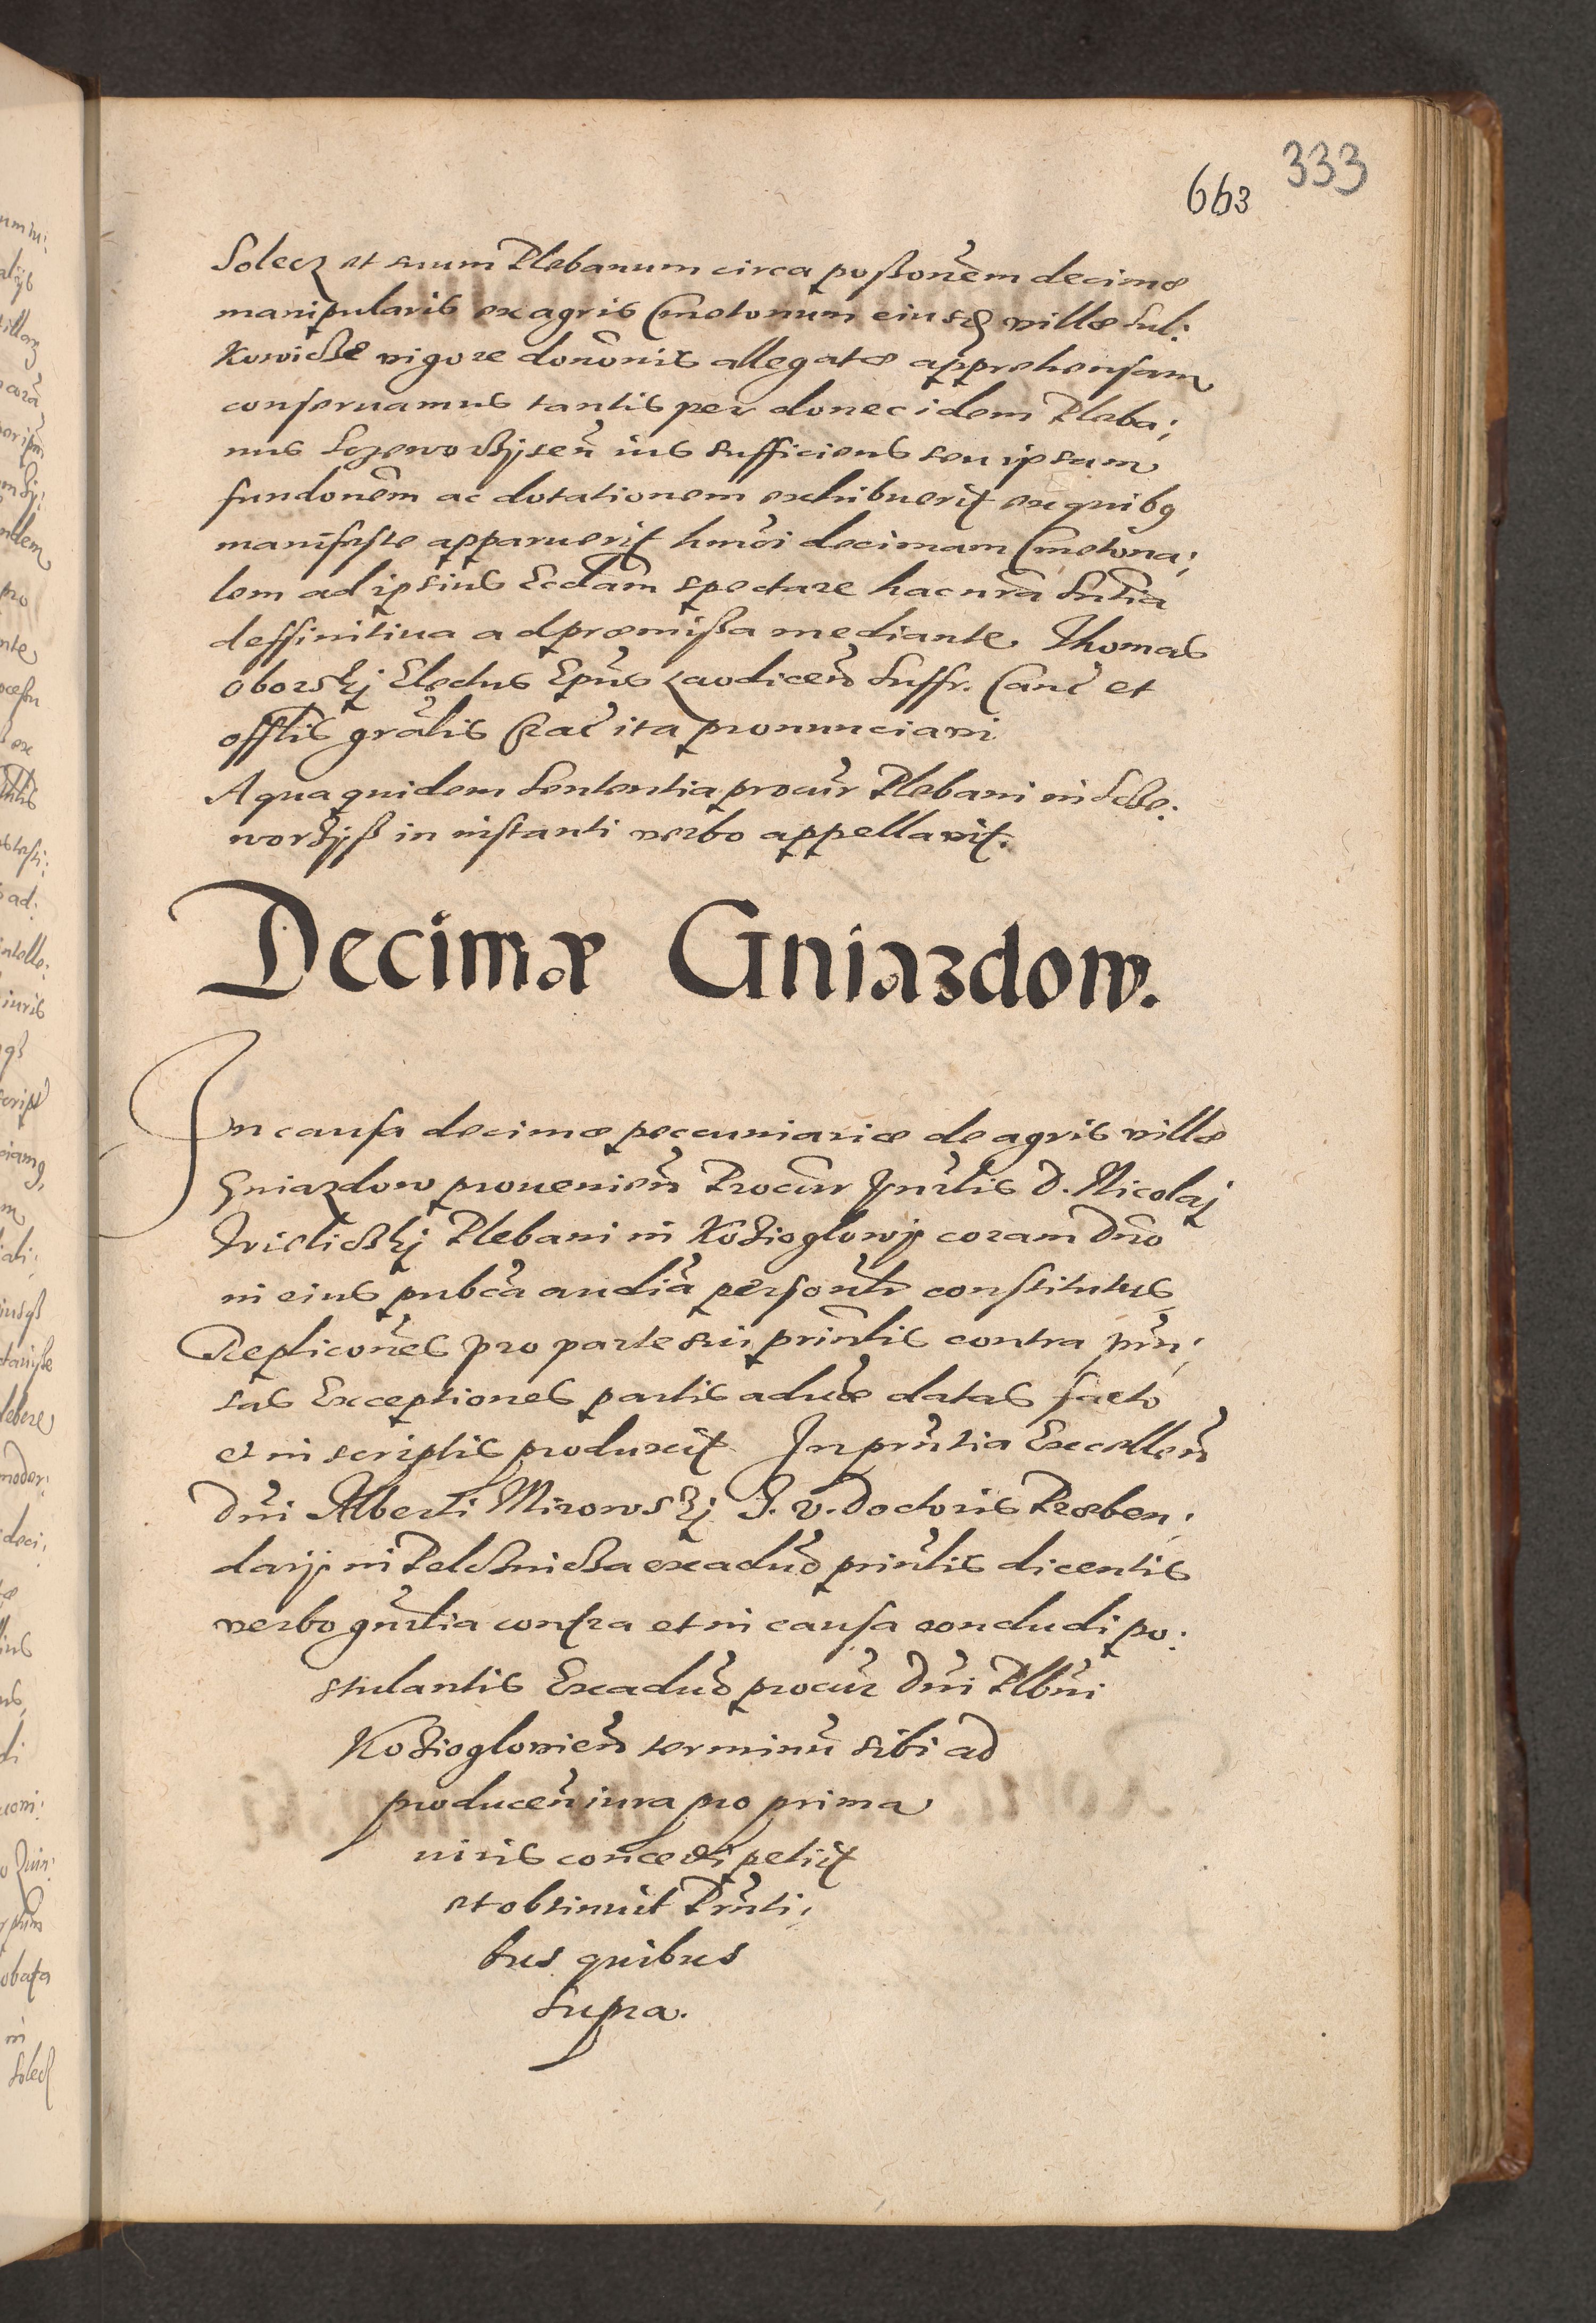 333
663
Solecz et suum Plebanum circa poßonem decimæ
manipularis ex agris Cmetonum eiusd villæ Sul:
kowicze vigore dononis allegatæ apprehensam
conseruamus tantisper donec idem Pleba:
nus ius sufficiens seu ipsam
fundonem ac dotationem exhibuerit ex quibq
manifeste apparuerit hmoi decimam Cmetona:
lem ad ipsius Ecclam spectare hac nra Sntia
deffinitiua ad præmißa mediante Thomas
Oborskj Electus Epus Laodicen Suffr. Canc et
offlis gralis Crac ita pronunciaui
A qua quidem Sententia procur Plebani in
in instanti verbo appellauit.
Decimæ Gniazdow.
In causa decimæ peccuniariæ de agris villæ
Gniazdow prouenien Procur D. Nicolaj
Plebani in Koziogłowy coram Dno
in eius pubca audia personlr constitutus
Replicones pro parte sui prinlis contra prn:
sas Exceptiones partis aduæ datas facto
et in scriptis produxit. In prntia Excellen
Dni Alberti Mirowskj J. V. Doctoris Præben:
darij in ex aduo prinlis dicentis
verbo gnrlia contra et in causa concludi po:
stulantis Ex aduo procur Dni Plbni
Kozioglouien terminu sibi ad
producen iura pro prima
iuris concedi petijt
et obtinuit Prnti:
bus quibus
supra.